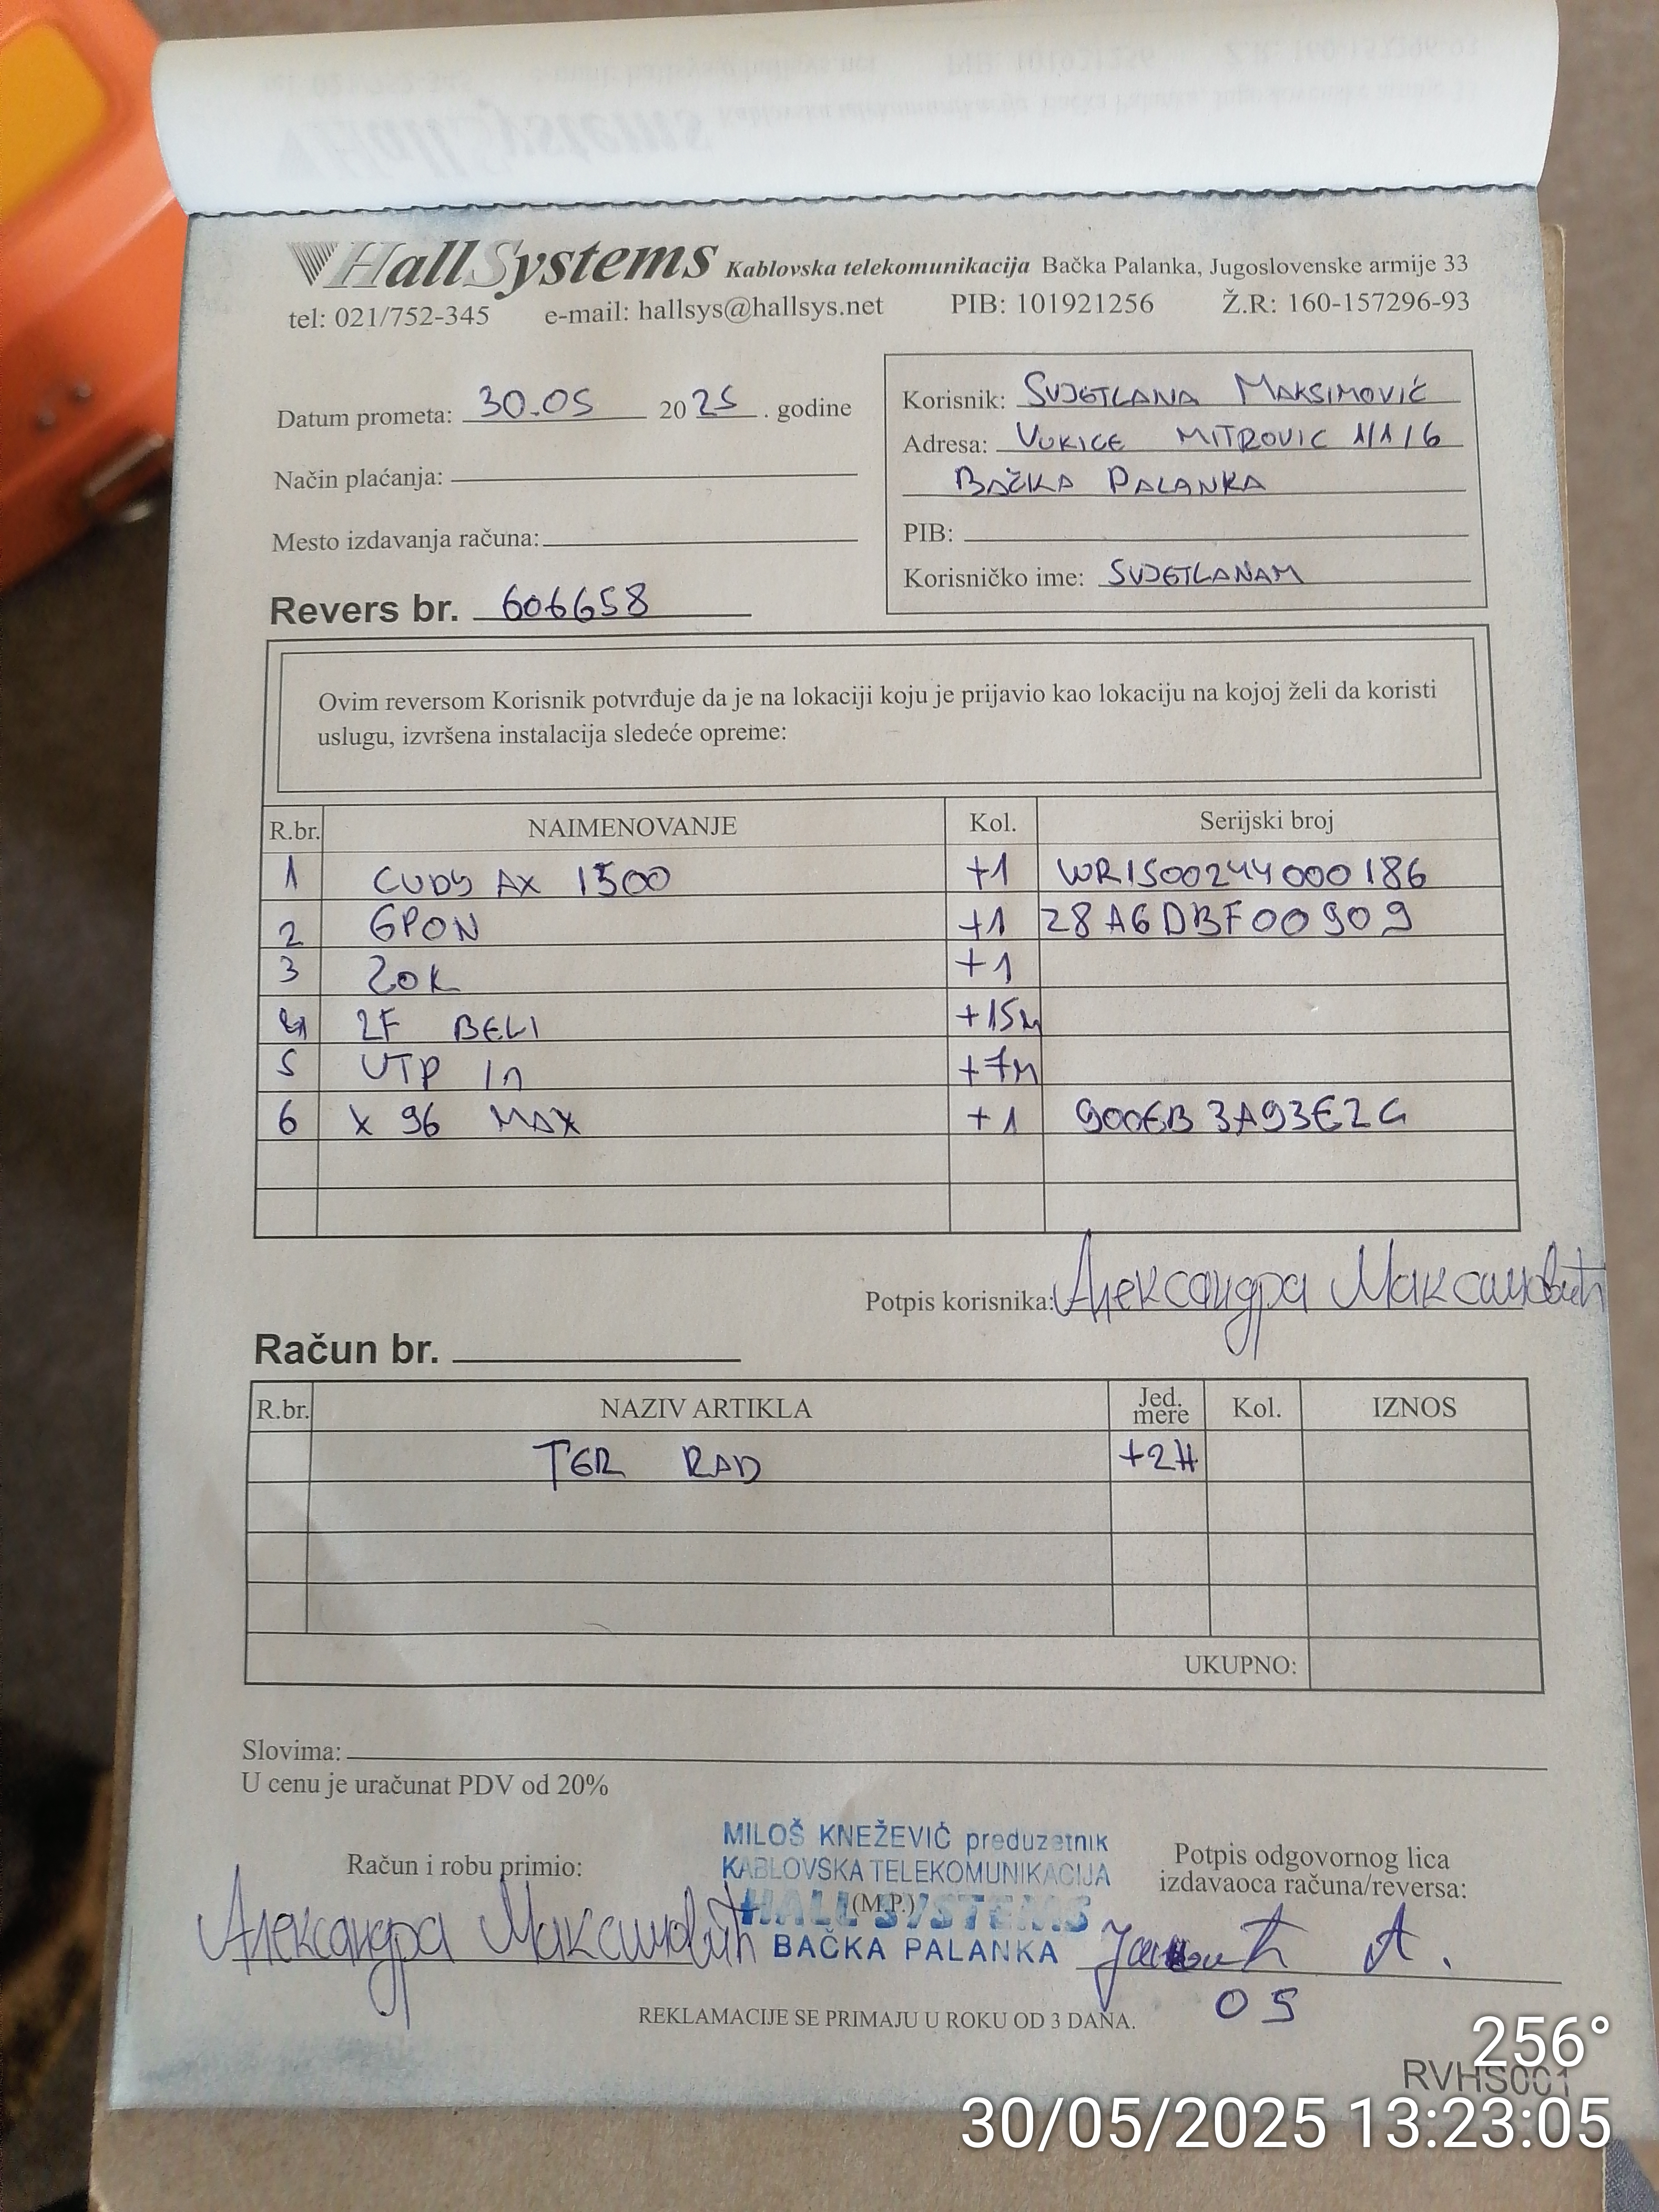 HallSystems Kablovska telekomunikacija Bačka Palanka, Jugoslovenske armije 33
tel: 021/752-345 e-mail: hallsys@hallsys.net PIB: 101921256 Ž.R: 160-157296-93
Datum prometa: 30.05 2025. godine
Način plaćanja:
Mesto izdavanja računa:
Revers br. 606658
Korisnik: SVJETLANA MAKSIMOVIĆ
Adresa: VUKICE MITROVIC 1/1/6
BAČKA PALANKA
PIB:
Korisničko ime: SVJETLANAM
Ovim reversom Korisnik potvrđuje da je na lokaciji koju je prijavio kao lokaciju na kojoj želi da koristi
uslugu, izvršena instalacija sledeće opreme:
R.br. NAIMENOVANJE Kol. Serijski broj
1 CUDY AX 1500 +1 WR1500244000186
2 GPON +1 28A6DBF00909
3 ZOK +1
4 2F BELI +15M
5 UTP In +7M
6 X 96 MAX +1
Potpis korisnika: Александра Максимовић
Račun br.
R.br. NAZIV ARTIKLA Jed. mere Kol. IZNOS
TER RAD +2H
UKUPNO:
Slovima:
U cenu je uračunat PDV od 20%
MILOŠ KNEŽEVIĆ preduzetnik
KABLOVSKA TELEKOMUNIKACIJA
HALL SYSTEMS
BAČKA PALANKA
(M.P.)
Račun i robu primio:
Александра Максимовић
Potpis odgovornog lica
izdavaoca računa/reversa:
А.
05
REKLAMACIJE SE PRIMAJU U ROKU OD 3 DANA.
256°
RVHS001
30/05/2025 13:23:05